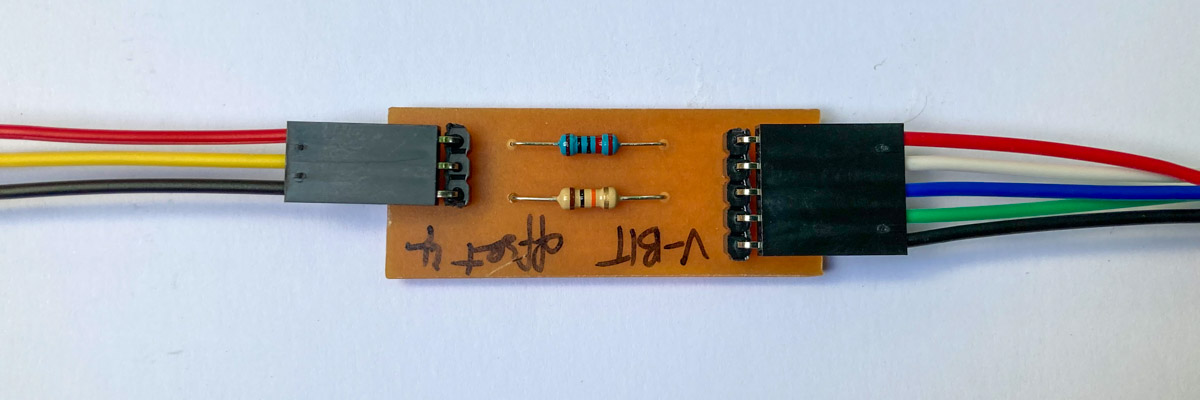 V-BIT offset 4